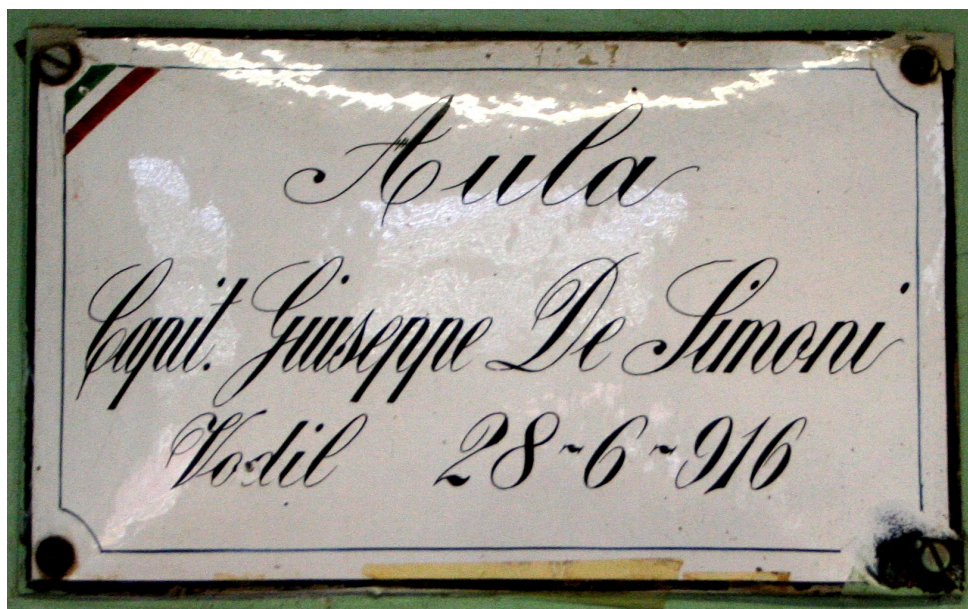 Aula
Capit. Giuseppe De Simoni
Vodil 28-6-916